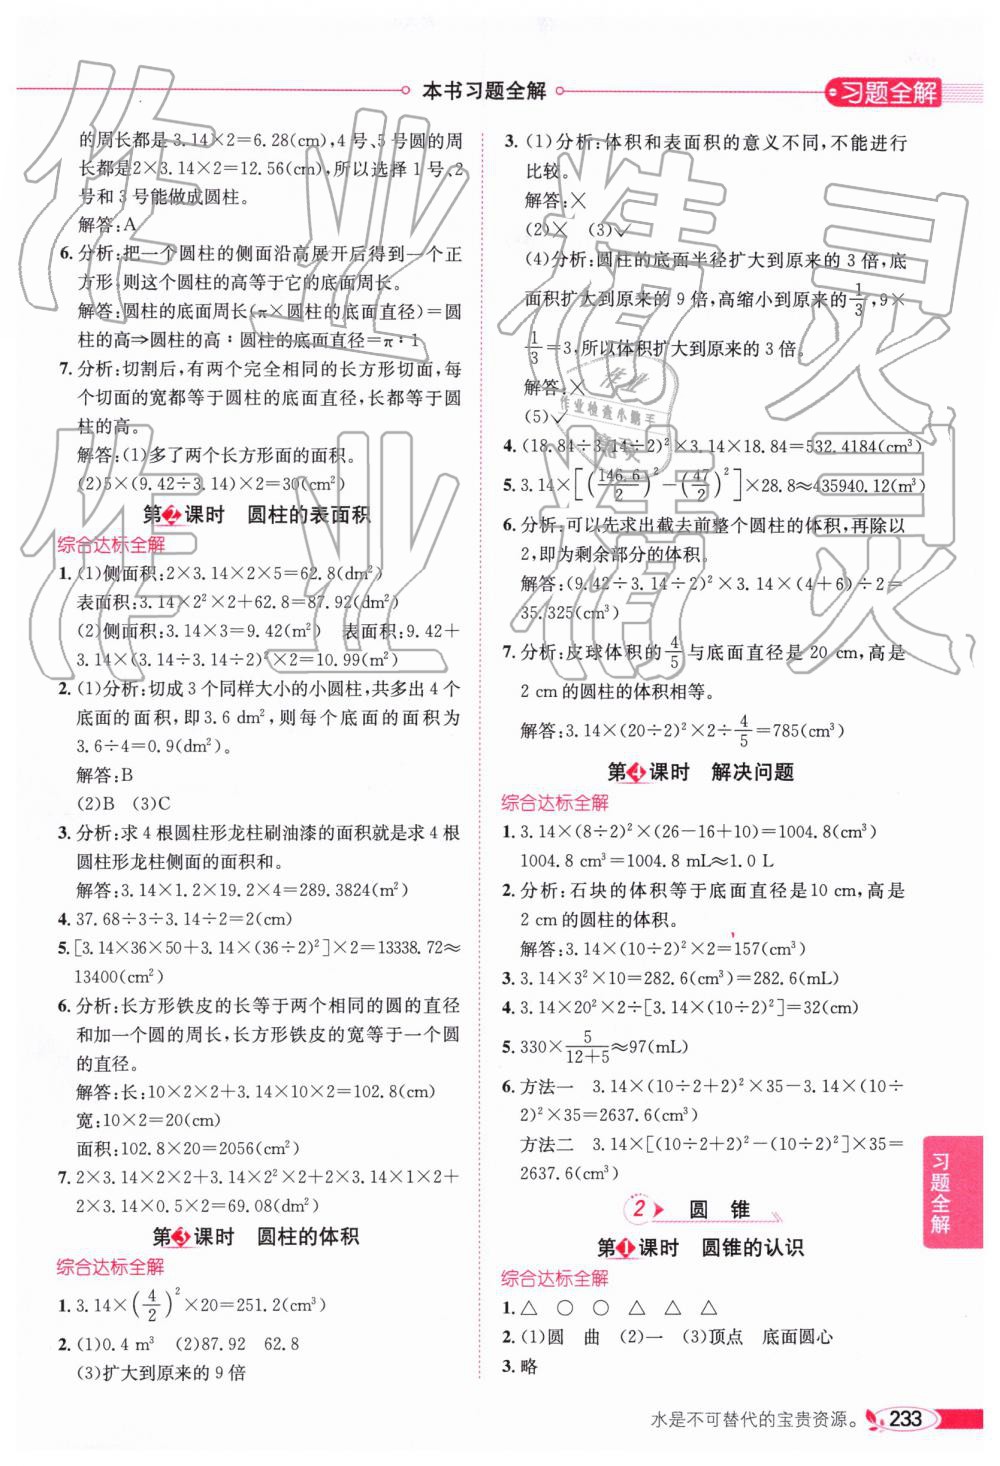 本书习题全解
习题全解
的周长都是3.14×2=6.28(cm),4号、5号圆的周
长都是2×3.14×2=12.56(cm),所以选择1号、2
号和3号能做成圆柱。
解答:A
6.分析:把一个圆柱的侧面沿高展开后得到一个正
方形,则这个圆柱的高等于它的底面周长。
解答:圆柱的底面周长(π×圆柱的底面直径)=圆
柱的高⇒圆柱的高∶圆柱的底面直径=π∶1
7.分析:切割后,有两个完全相同的长方形切面,每
个切面的宽都等于圆柱的底面直径,长都等于圆
柱的高。
解答:(1)多了两个长方形面的面积。
(2)5×(9.42÷3.14)×2=30(cm²)
第2课时 圆柱的表面积
综合达标全解
1.(1)侧面积:2×3.14×2×5=62.8(dm²)
表面积:3.14×2²×2+62.8=87.92(dm²)
(2)侧面积:3.14×3=9.42(m²) 表面积:9.42+
3.14×(3.14÷3.14÷2)²×2=10.99(m²)
2.(1)分析:切成3个同样大小的小圆柱,共多出4个
底面的面积,即3.6 dm²,则每个底面的面积为
3.6÷4=0.9(dm²)。
解答:B
(2)B (3)C
3.分析:求4根圆柱形龙柱刷油漆的面积就是求4根
圆柱形龙柱侧面的面积和。
解答:3.14×1.2×19.2×4=289.3824(m²)
4.37.68÷3÷3.14÷2=2(cm)
5.[3.14×36×50+3.14×(36÷2)²]×2=13338.72≈
13400(cm²)
6.分析:长方形铁皮的长等于两个相同的圆的直径
和加一个圆的周长,长方形铁皮的宽等于一个圆
的直径。
解答:长:10×2×2+3.14×10×2=102.8(cm)
宽:10×2=20(cm)
面积:102.8×20=2056(cm²)
7.2×3.14×2×2+3.14×2²×2+2×3.14×1×2+
2×3.14×0.5×2=69.08(dm²)
第3课时 圆柱的体积
综合达标全解
1.3.14×(4/2)²×20=251.2(cm³)
2.(1)0.4 m³ (2)87.92 62.8
(3)扩大到原来的9倍
3.(1)分析:体积和表面积的意义不同,不能进行
比较。
解答:×
(2)× (3)√
(4)分析:圆柱的底面半径扩大到原来的3倍,底
面积扩大到原来的9倍,高缩小到原来的1/3,9×
1/3=3,所以体积扩大到原来的3倍。
解答:×
(5)√
4.(18.84÷3.14÷2)²×3.14×18.84=532.4184(cm³)
5.3.14×[(146.6/2)²-(47/2)²]×28.8≈435940.12(m³)
6.分析:可以先求出截去前整个圆柱的体积,再除以
2,即为剩余部分的体积。
解答:(9.42÷3.14÷2)²×3.14×(4+6)÷2=
35.325(cm³)
7.分析:皮球体积的4/5与底面直径是20 cm,高是
2 cm的圆柱的体积相等。
解答:3.14×(20÷2)²×2÷4/5=785(cm³)
第4课时 解决问题
综合达标全解
1.3.14×(8÷2)²×(26-16+10)=1004.8(cm³)
1004.8 cm³=1004.8 mL≈1.0 L
2.分析:石块的体积等于底面直径是10 cm,高是
2 cm的圆柱的体积。
解答:3.14×(10÷2)²×2=157(cm³)
3.3.14×3²×10=282.6(cm³)=282.6(mL)
4.3.14×20²×2÷[3.14×(10÷2)²]=32(cm)
5.330×5/(12+5)≈97(mL)
6.方法一 3.14×(10÷2+2)²×35-3.14×(10÷
2)²×35=2637.6(cm³)
方法二 3.14×[(10÷2+2)²-(10÷2)²]×35=
2637.6(cm³)
2 圆锥
第1课时 圆锥的认识
综合达标全解
1.△ ○ ○ △ △ △
2.(1)圆 曲 (2)一 (3)顶点 底面圆心
3.略
习题全解
水是不可替代的宝贵资源。 233
作业精灵
作业精灵
作业
作业检查小能手
精灵